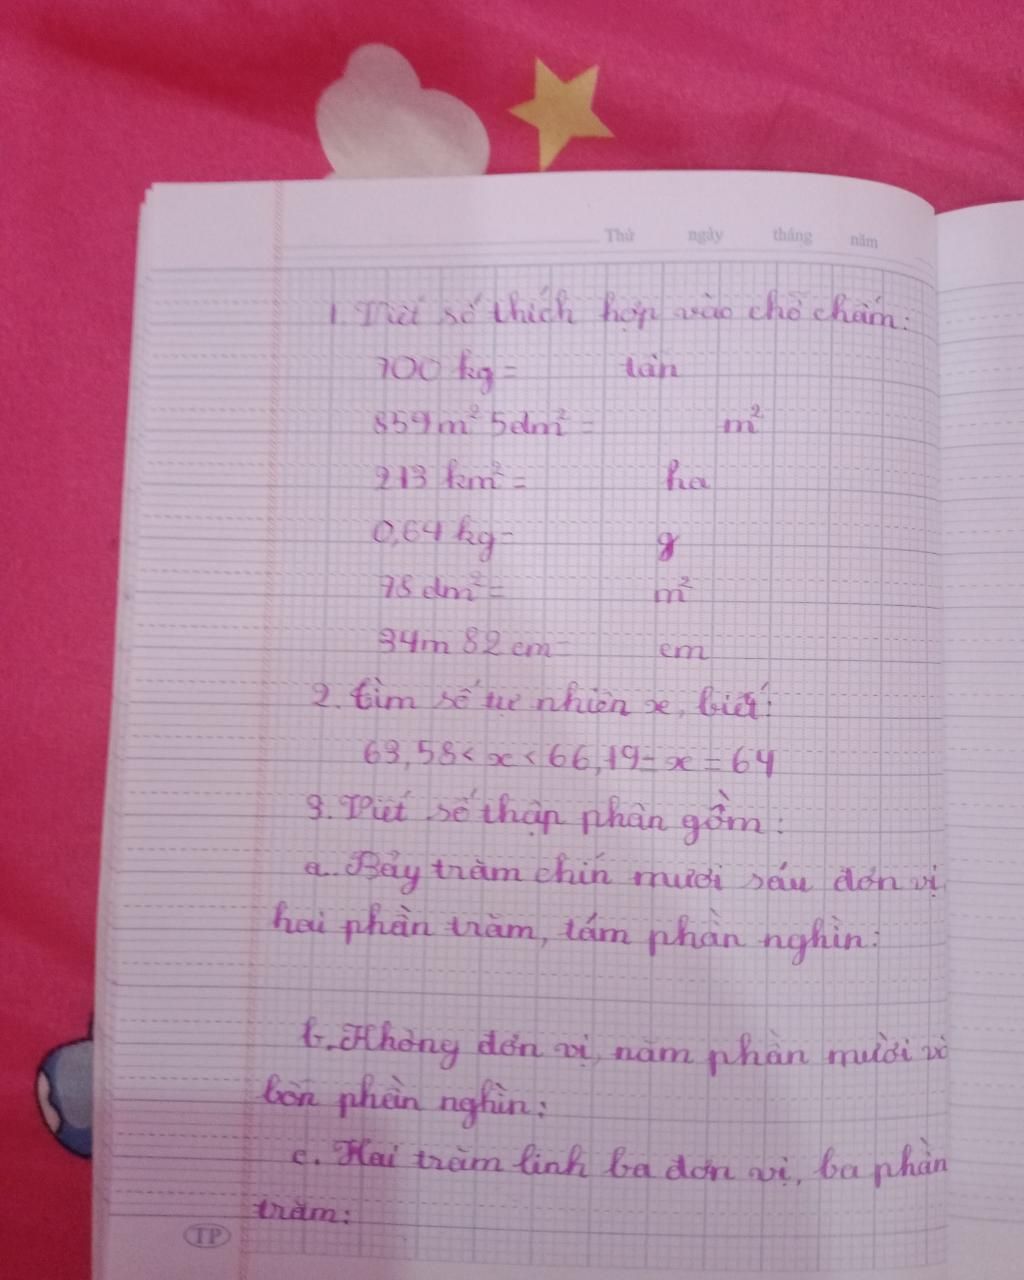 Thứ ngày tháng năm
1. Viết số thích hợp vào chỗ chấm:
700 kg = tấn
859m² 5dm² = m²
213 km² = ha
0,64 kg = g
75 dm² = m²
34m 82 cm = cm
2. tìm số tự nhiên x, biết:
63,58 < x < 66,19 = x = 64
3. Viết số thập phân gồm:
a. Bảy trăm chín mươi sáu đơn vị
hai phần trăm, tám phần nghìn:
b. Không đơn vị, năm phần mười và
bốn phần nghìn:
c. Hai trăm linh ba đơn vị, ba phần
trăm:
TP